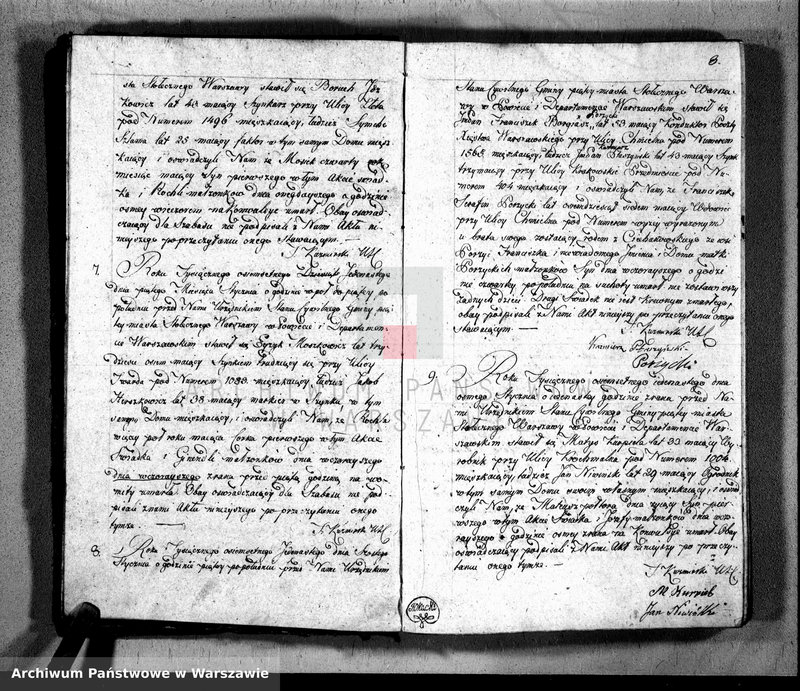 sta Stołecznego Warszawy stawił się Boruch
kowicz lat 42 maiący Szynkarz przy Ulicy Złota
pod Numerem 1496 mieszkaiący, tudzież
Szlama lat 25 maiący faktor w tym samym Domu miesz
kaiący i oswiadczyli Nam, że Mosiek czwarty
miesiąc maiący Syn pierwszego w tym Akcie świad
ka, i Rochli małżonków dnia onegdayszego o godzinie
osmey wieczorem na Konwulsye umarł. Obay oswiad
czaiący dla Szabasu nie podpisali z Nami Aktu ni
nieyszego po przeczytaniu onego Stawaiącym. —
J. Kuzminski
7. Roku Tysiącznego osmsetnego Jedenastego
dnia piątego Miesiąca Stycznia o godzinie wpół do piątey po
południu przed Nami Urzędnikiem Stanu Cywilnego Gminy pią
tey miasta Stołecznego Warszawy w Powiecie i Departamen
cie Warszawskim stawił się Moszkowicz lat trzy
dzieści osm maiący Szynkiem trudniący się przy Ulicy
Twarda pod Numerem 1088 mieszkaiący, tudzież Jakob
Herszkowicz lat 38 maiący w Szynku w tym
samym Domu mieszkaiący, i oswiadczyli Nam, że Rochla
więcey pół roku maiąca Corka pierwszego w tym Akcie
Swiadka i Gnendli małżonków dnia wczorayszego
dnia wczorayszego zrana przed piątą godziną na wo
mity umarła Obay oswiadczaiący dla Szabasu nie pod
pisali z nami Aktu ninieyszego po przeczytaniu onego
tymże. —
J. Kuzminski
8. Roku Tysiącznego osmsetnego Jedenastego dnia Szóstego
Stycznia o godzinie piątey po południu przed Nami Urzędnikiem
8.
Stanu Cywilnego Gminy piątey miasta Stołecznego Warsza
wy w Powiecie i Departamencie Warszawskim stawił się
Jegomość Franciszek Borzycki lat 53 maiący Konduktor Poczty
Xięstwa Warszawskiego przy Ulicy Chmielna pod Numerem
1565 mieszkaiący, tudzież lat 43 maiący Szynk
trzymaiący przy Ulicy Krakowskie Przedmieście pod Nu
merem 404 mieszkaiący i oswiadczyli Nam, że Franciszek
Serafin Pożycki lat osmdziesiąt siedem maiący Wdowiec
przy Ulicy Chmielna pod Numerem wyżey wyrażonym
u brata swego zostaiący, rodem z
Franciszka i niewiadomego Imienia i Domu matki
Pożyckich małżonków Syn dnia wczorayszego o godzi
nie czwartey po południu na suchoty umarł nie zostawiwszy
żadnych dzieci. Drugi Swiadek nie iest krewnym zmarłego,
obay podpisali z Nami Akt ninieyszy po przeczytaniu onego
Stawaiącym —
J. Kuzminski
Pożycki
9. Roku Tysiącznego osmsetnego iedenastego dnia
osmego Stycznia o iedenastey godzinie zrana przed Na
mi Urzędnikiem Stanu Cywilnego Gminy piątey miasta
Stołecznego Warszawy w Powiecie i Departamencie War
szawskim stawił się Matys lat 33 maiący Wy
robnik przy Ulicy Krochmalna pod Numerem 1006
mieszkaiący, tudzież Jan Niwinski lat 29 maiący Ogrodnik
w tym samym Domu swoim własnym mieszkaiący, i oswiad
czyli Nam, że Mateusz półtora dnia żyiący Syn pier
wszego w tym Akcie Swiadka, i Zofiy małżonków dnia wczo
rayszego o godzinie osmey zrana na Konwulsye umarł. Obay
oswiadczaiący podpisali z Nami Akt ninieyszy po przeczy
taniu onego tymże. —
J. Kuzminski
Jan
ARCHIWUM PAŃSTWOWE
W WARSZAWIE
Archiwum Państwowe w Warszawie